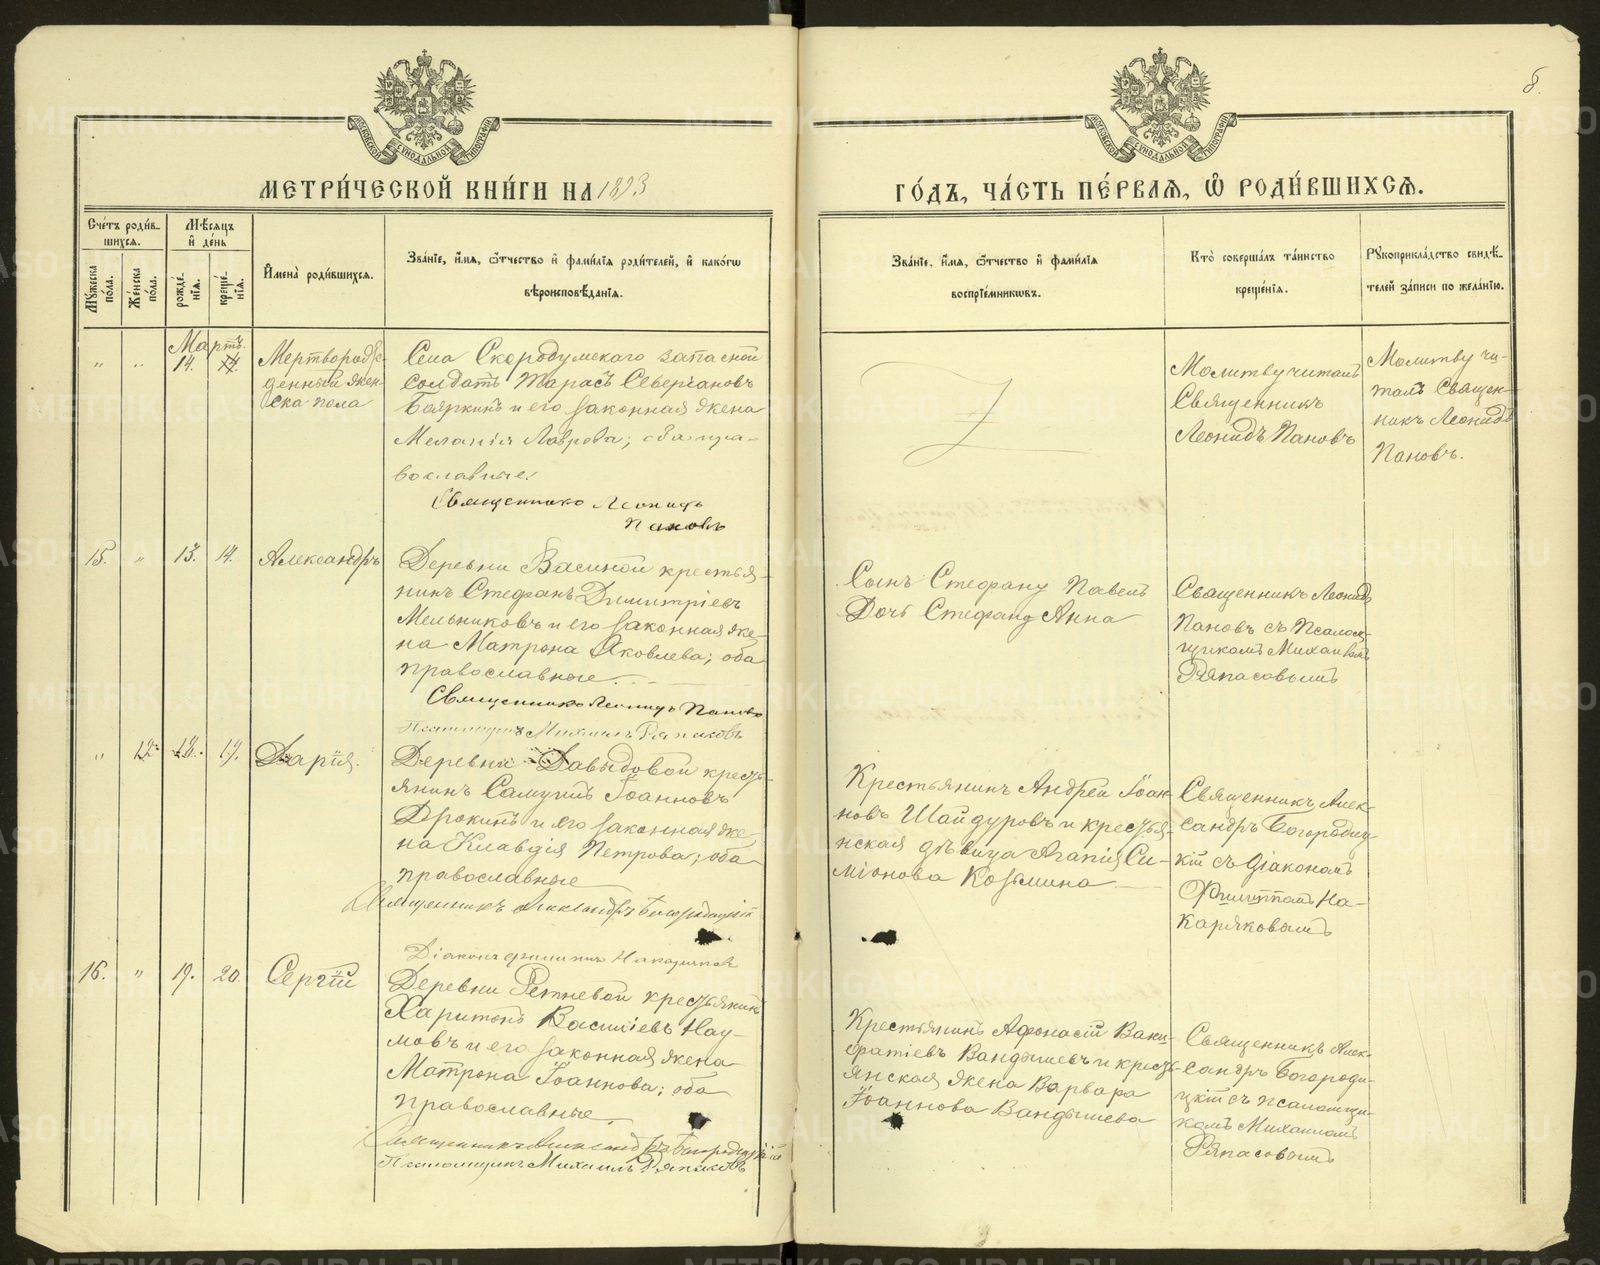 МЕТРИ́ЧЕСКОЙ КНИ́ГИ НА 1893
ГО́ДЪ, ЧА́СТЬ ПЕ́РВАЯ, Ѽ РОДИ́ВШИХСЯ.
8.
МОСКОВСКОЙ СѴНОДАЛЬНОЙ ТИПОГРАФІИ
МОСКОВСКОЙ СѴНОДАЛЬНОЙ ТИПОГРАФІИ
Сче́тъ роди́в-
шихся.
Мꙋ́жеска
по́ла.
Же́нска
по́ла.
Мѣ́сяцъ
и҆ де́нь
рожде́-
нія.
креще́-
нія.
И҆мена̀ роди́вшихся.
Зва́ніе, и҆́мя, ѻ҆́тчество и҆ фами́лія роди́телей, и҆ како́гѡ
вѣроисповѣ́данія.
Зва́ніе, и҆́мя, ѻ҆́тчество и҆ фами́лія
воспріе́мникѡвъ.
Кто̀ соверша́лъ та́инство
креще́нія.
Рꙋкоприкла́дство свидѣ́-
телей за́писи по жела́нію.
Мартъ.
" " 14. 14.
Мертворож-
денный жен-
ска пола
Села Скородумскаго запасной
солдатъ Тарасъ Севергановъ
Бояркинъ и его законная жена
Меланія Лаврова; оба пра-
вославные.
Священникъ Леонидъ
Пановъ
Молитву читалъ
Священникъ
Леонидъ Пановъ
Молитву чи-
талъ Священ-
никъ Леонидъ
Пановъ.
15. " 13. 14.
Александръ
Деревни Васиной крестья-
нинъ Стефанъ Димитріевъ
Мельниковъ и его законная же-
на Матрона Яковлева; оба
православные.
Священникъ Леонидъ Пановъ
Сынъ Стефану Павелъ
Дочь Стефана Анна
Священникъ Леонидъ
Пановъ съ Псалом-
щикомъ Михаиломъ
Ряпасовымъ
" 12. 18. 19.
Дарія.
Деревни Давыдовой кресть-
янинъ Самуилъ Іоанновъ
Дрокинъ и его законная же-
на Клавдія Петрова; оба
православные
Священникъ Александръ Богородицкій
Діаконъ Филиппъ Накаряковъ
Крестьянинъ Андрей Іоан-
новъ Шайдуровъ и крестья-
нская дѣвица Агапія Си-
міонова Козьмина
Священникъ Алек-
сандръ Богородиц-
кій съ діакономъ
Филиппомъ На-
каряковымъ
16. " 19. 20.
Сергій
Деревни Ретневой крестьянинъ
Харитонъ Васильевъ Нау-
мовъ и его законная жена
Матрона Іоаннова; оба
православные
Священникъ Александръ Богородицкій
Псаломщикъ Михаилъ Ряпасовъ
Крестьянинъ Афонасій
Вандышевъ и кресть-
янская жена Варвара
Іоаннова Вандышева
Священникъ Алек-
сандръ Богороди-
цкій съ псаломщи-
комъ Михаиломъ
Ряпасовымъ
METRIKI.GASO-URAL.RU